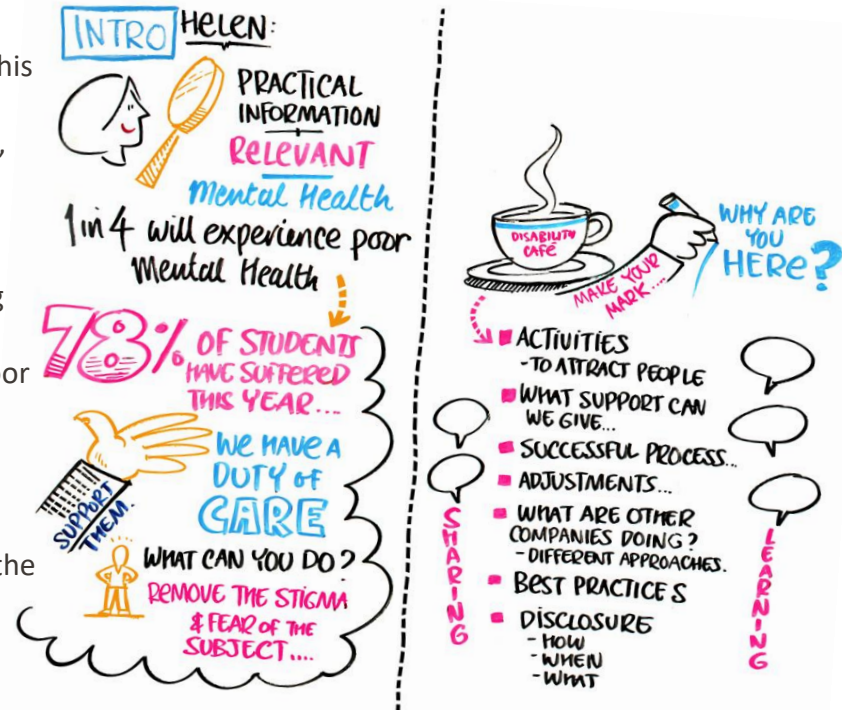 his
,
g
oor
the
INTRO HELEN:
PRACTICAL
INFORMATION
RELEVANT
Mental Health
1 in 4 will experience poor
Mental Health
78% OF STUDENTS
HAVE SUFFERED
THIS YEAR...
WE HAVE A
DUTY OF
CARE
SUPPORT
THEM.
WHAT CAN YOU DO?
REMOVE THE STIGMA
& FEAR OF THE
SUBJECT....
DISABILITY
CAFÉ
MAKE YOUR
MARK....
WHY ARE
YOU
HERE?
ACTIVITIES
- TO ATTRACT PEOPLE
WHAT SUPPORT CAN
WE GIVE...
SUCCESSFUL PROCESS...
ADJUSTMENTS...
WHAT ARE OTHER
COMPANIES DOING?
- DIFFERENT APPROACHES.
BEST PRACTICES
DISCLOSURE
- HOW
- WHEN
- WHAT
SHARING
LEARNING